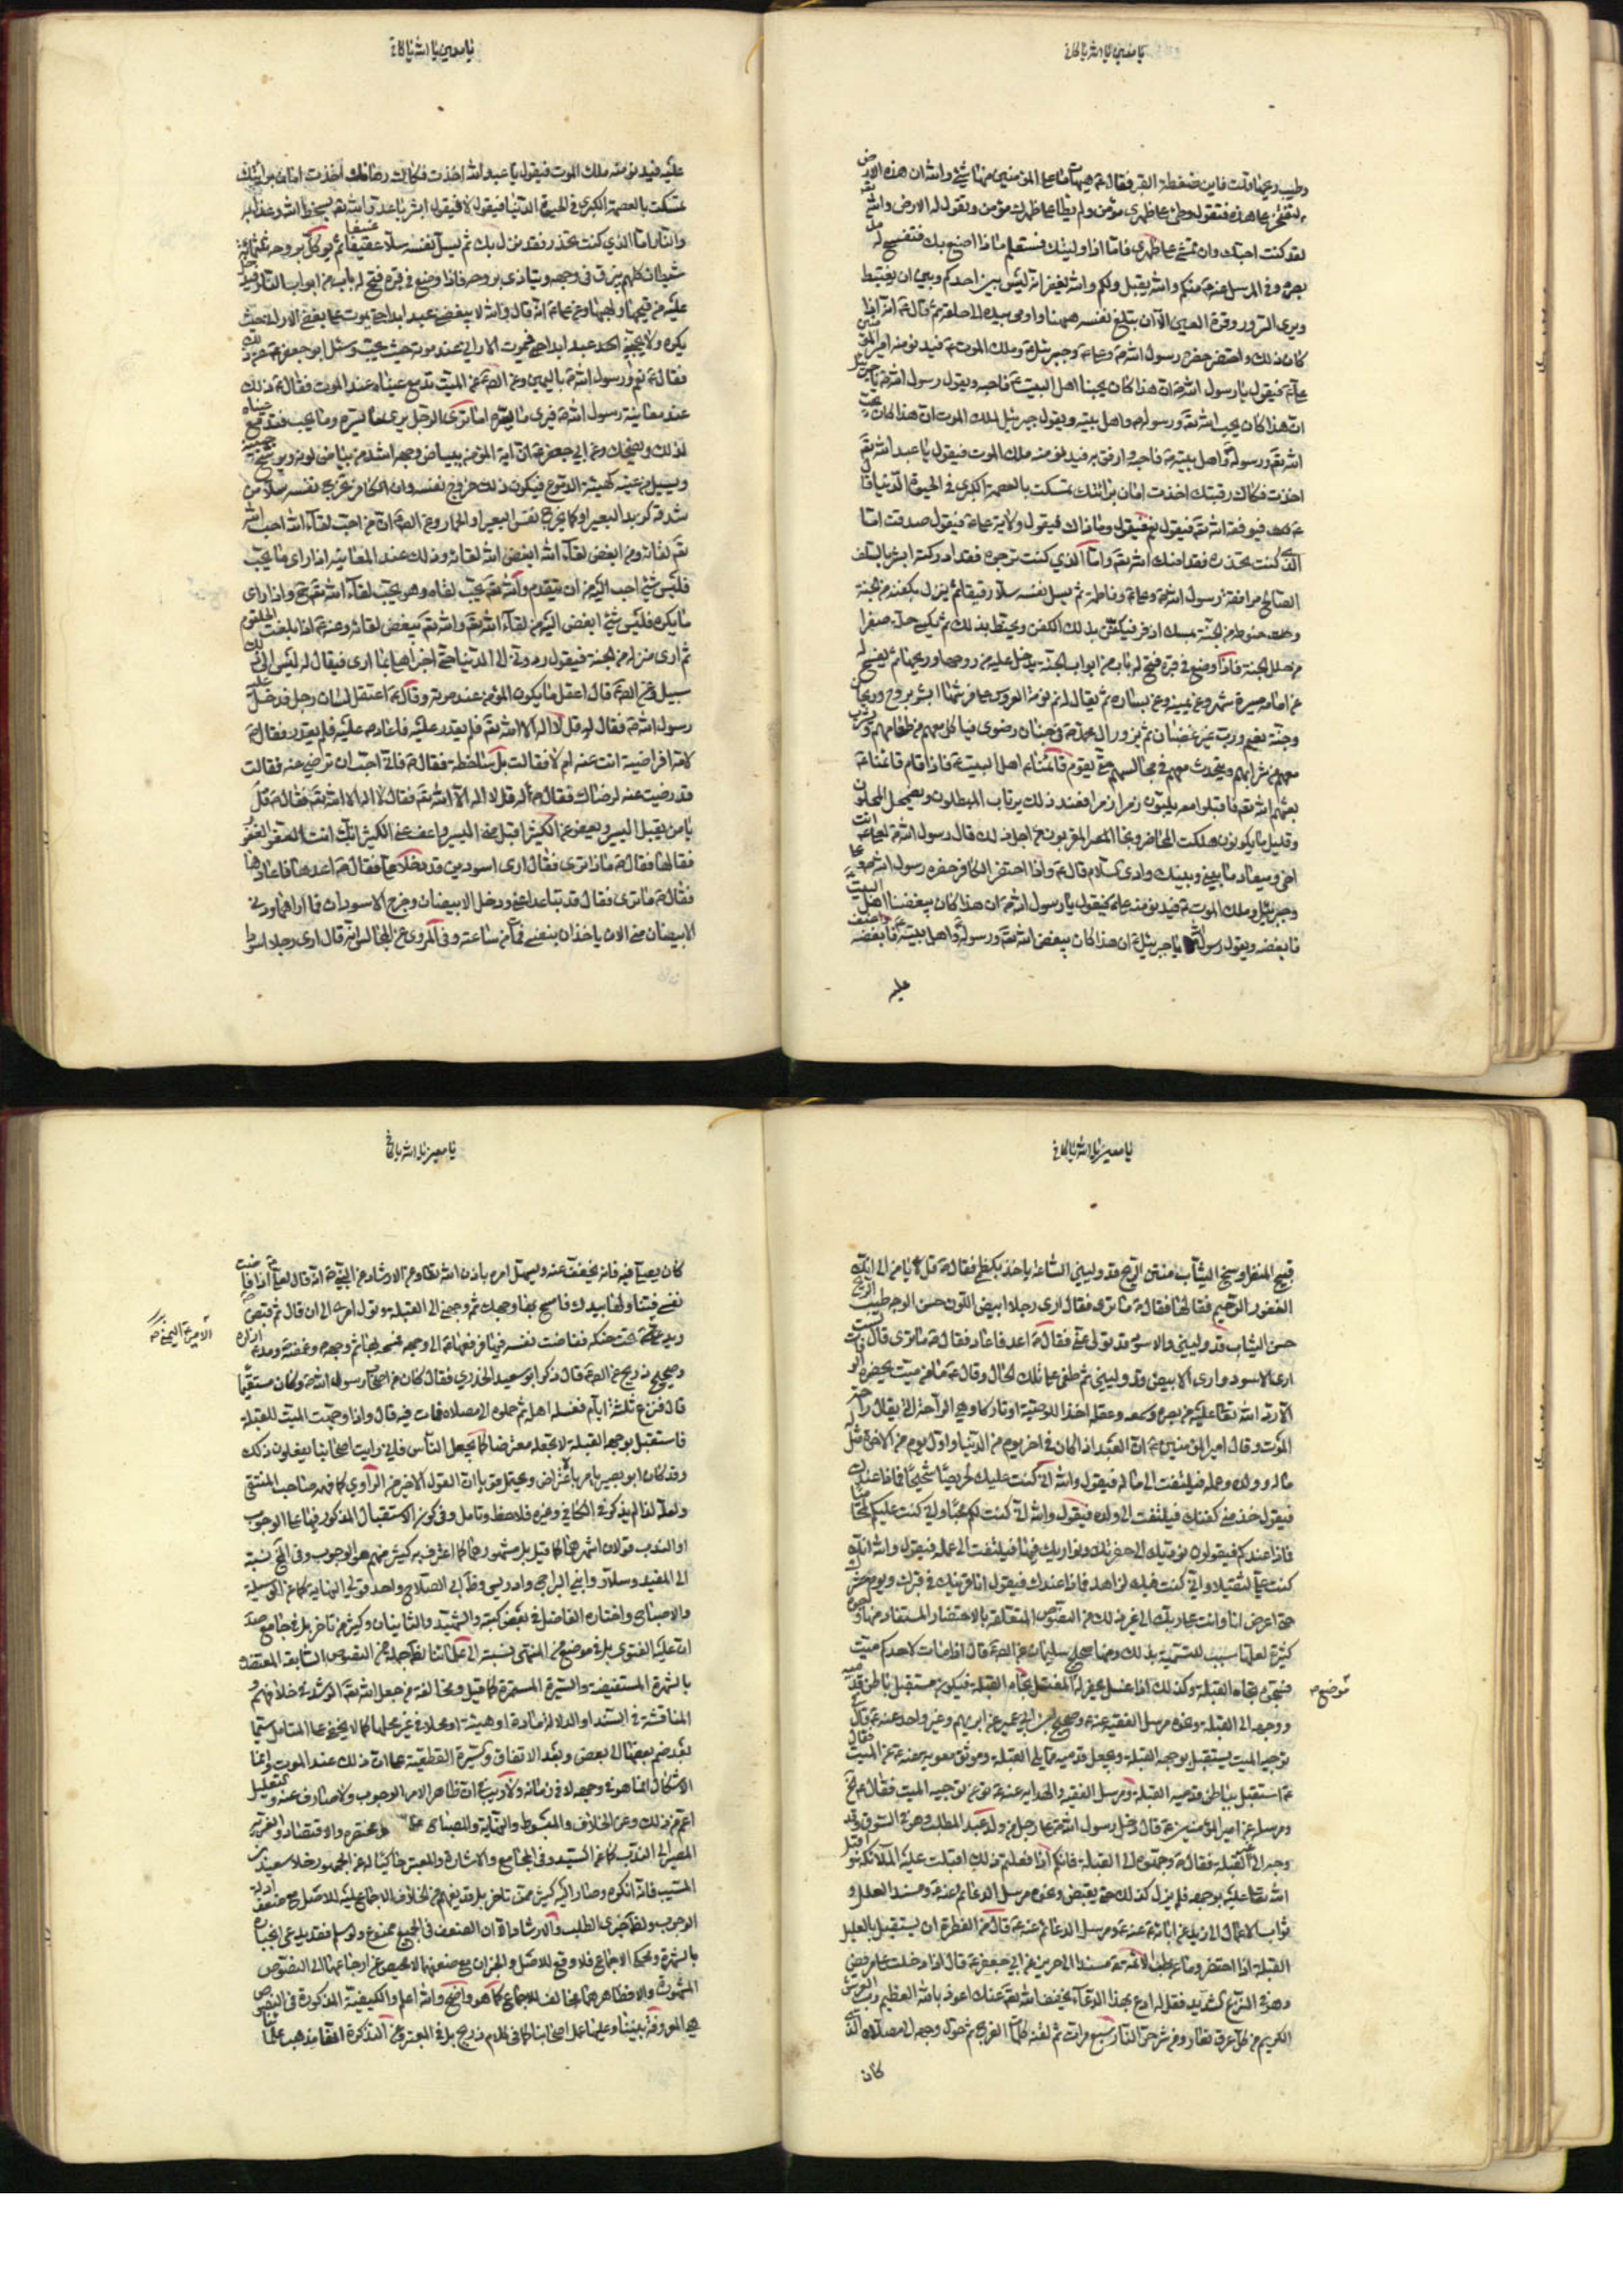 يا معين يا الله يا كافي
وطيب وعينا قلت فاين ضغطة القبر فقال ع هيهات ما على المؤمنين منها شيء والله ان هذه الارض
لتفتخر على هذه فتقول وطئ على ظهري مؤمن ولم يطأ على ظهرك مؤمن وتقول له الارض والله
لقد كنت احبك وان تمشي على ظهري فاما اذا وليتك فستعلم ماذا اصنع بك فتفسح له مد
بصره وفي المرسل عنه ع منكم والله يقبل ولكم والله يغفر انه ليس بين احدكم وبين ان يغتبط
ويرى السرور وقرة العين الا ان تبلغ نفسه ههنا واومى بيده الى حلقه ثم قال ع انه اذا
كان ذلك واحتضر حضره رسول الله ص وعلي ع وجبرئيل ع وملك الموت ع فيدنو منه امير المؤمنين
علي ع فيقول يا رسول الله ص ان هذا كان يحبنا اهل البيت ع فاحبه ويقول رسول الله ص يا جبرئيل
ان هذا كان يحب الله تع ورسوله ص واهل بيته ويقول جبرئيل لملك الموت ان هذا كان يحب
الله تع ورسوله واهل بيته ع فاحبه وارفق به فيدنو منه ملك الموت فيقول يا عبد الله تع
اخذت فكاك رقبتك اخذت امان براتك تمسكت بالعصمة الكبرى في الحيوة الدنيا قال
ع فيوفقه الله تع فيقول نعم فيقول وما ذاك فيقول ولاية علي ع فيقول صدقت اما
الذي كنت تحذره فقد امنك الله تع واما الذي كنت ترجوه فقد ادركته ابشر بالسلف
الصالح مرافقة رسول الله ص وعلي ع وفاطمة ثم يسل نفسه سلا رقيقا ثم ينزل بكفنه من الجنة
وحنوط من الجنة بمسك اذفر فيكفن بذلك الكفن ويحنط بذلك ثم يكسى حلة صفرا
من حلل الجنة فاذا وضع في قبره فتح له باب من ابواب الجنة يدخل عليه من روحها وريحانها ثم يفسح له
عن امامه مسيرة شهر وعن يمينه وعن يساره ثم يقال له نم نومة العروس على فرشها ابشر بروح وريحان
وجنة نعيم ورب غير غضبان ثم يزور ال محمد ص في جنان رضوى فياكل معهم من طعامهم ويشرب
معهم من شرابهم ويتحدث معهم في مجالسهم حتى يقوم قائمنا اهل البيت ع فاذا قام قائمنا ع
بعثهم الله تع فاقبلوا معه يلبون زمرا زمرا فعند ذلك يرتاب المبطلون ويضمحل المحلون
وقليل ما يكونون هلكت المحاضير ونجا المقربون من اجل ذلك قال رسول الله ص لعلي ع انت
اخي وميعاد ما بيني وبينك وادي السلام قال ع واذا احتضر الكافر حضره رسول الله ص وعلي
وجبرئيل وملك الموت ع فيدنو منه علي ع فيقول يا رسول الله ص ان هذا كان يبغضنا اهل البيت
فابغضه ويقول رسول الله يا جبرئيل ع ان هذا كان يبغض الله تع ورسوله واهل بيته ع فابغضه واعنف
عليه
يا معين يا الله يا كافي
عليه فيدنو منه ملك الموت فيقول يا عبد الله اخذت فكاك رهانك اخذت امان براتك
تمسكت بالعصمة الكبرى في الحيوة الدنيا فيقول لا فيقول ابشر يا عدو الله تع بسخط الله وعذابه
والنار اما الذي كنت تحذر فقد نزل بك ثم يسل نفسه سلا عنيفا ثم يوكل بروحه ثلثمائة
شيطان كلهم يبزق في وجهه ويتاذى بروحه فاذا وضع في قبره فتح له باب من ابواب النار فيدخل
عليه من قيحها ولهبها وعن علي ع انه قال والله لا يبغضني عبد ابدا حتى يموت على بغضي الا راني حيث
يكره ولا يحبني احد عبد ابدا حتى فيموت الا راني عند موته حيث يحب وسئل ابو جعفر ع
فقال ع نعم ورسول الله ص باليمين وعن الص ع عن الميت تدمع عيناه عند الموت فقال ع ذلك
عند معاينة رسول الله ص فيرى ما يسره اما ترى الرجل يرى ما يسره وما يحب فتدمع عيناه
لذلك ويضحك وعن ابي جعفر ع ان اية المؤمن بياض وجهه اشد من بياض لونه ويرشح جبينه
ويسيل من عينه كهيئة الدموع فيكون ذلك خروج نفسه وان الكافر تخرج نفسه سلا من
شدقه كزبد البعير او كما يخرج نفس البعير او الحمار وعن الص ع ان من احب لقاء الله احب الله
تع لقائه ومن ابغض لقاء الله ابغض الله لقائه وذلك عند المعاينة اذا راى ما يحب
فليس شيء احب اليه من ان يتقدم والله تع يحب لقاه وهو يحب لقاء الله تع ح واذا راى
ما يكره فليس شيء ابغض اليه من لقاء الله تع والله تع يبغض لقائه وعنه ع اذا بلغت الحلقوم
ثم ارى منزله من الجنة فيقول ردوني الى الدنيا حتى اخبر اهلي بما ارى فيقال له ليس الى ذلك
سبيل وعن الص ع قال اعقل ما يكون المؤمن عند موته وقال ع اعتقل لسان رجل فدخل عليه
رسول الله ص فقال له قل لا اله الا الله تع فلم يقدر عليه فاعاد ص عليه فلم يقدر فقال ع
لامه افراضية انت عنه ام لا فقالت بل ساخطة فقال ع فاني احب ان ترضي عنه فقالت
قد رضيت عنه لرضاك فقال ص له قل لا اله الا الله تع فقال لا اله الا الله تع فقال ص قل
يا من يقبل اليسير ويعفو عن الكثير اقبل مني اليسير واعف عني الكثير انك انت العفو الغفور
فقالها فقال ص ماذا ترى فقال ارى اسودين قد دخلا علي فقال ص اعدها فاعادها
فقال ص ما ترى فقال قد تباعدا عني ودخل الابيضان وخرج الاسودان فما اراهما ودنى
الابيضان مني الان ياخذان بنفسي فمات من ساعته وفي المروي عن المجالس انه قال ارى رجلا اسود
يا معين يا الله يا كافي
قبيح المنظر وسخ الثياب منتن الريح قد وليني الساعة ياخذ بكظمي فقال ص قل يا من الى انك
الغفور الرحيم فقالها فقال ص ما ترى فقال ارى رجلا ابيض اللون حسن الوجه طيب الريح
حسن الثياب قد وليني والاسود قد تولى عني فقال ص اعد فاعاد فقال ص ما ترى قال لست
ارى الاسود وارى الابيض قد وليني ثم طفى على تلك الحال وقال ع ما من ميت يحضره الوفات
الا رد الله تعا عليه من بصره وسمعه وعقله اخذا للوصية او تاركا وهي الراحة التي يقال راحة
الموت وقال امير المؤمنين ع ان العبد اذا كان في اخر يوم من الدنيا واول يوم من الاخرة مثل
ماله وولده وعمله فيلتفت الى ماله فيقول والله اني كنت عليك لحريصا شحيحا فماذا عندك
فيقول خذ مني كفنك فيلتفت الى ولده فيقول والله اني كنت لكم محبا واني كنت عليكم لمحاميا
فماذا عندكم فيقولون نوديك الى حفرتك ونواريك فيها فيلتفت الى عمله فيقول والله انك
كنت علي لثقيلا واني كنت فيك لزاهد فماذا عندك فيقول انا قرينك في قبرك ويوم حشرك
حتى اعرض انا وانت على ربك الى غير ذلك من النصوص المتعلقة بالاحتضار المستفاد منها وجوه
كثيرة لعلها سبب للتسمية بذلك ومنها صحيح سليمان عن الص ع قال اذا مات لاحدكم ميت
فسجوه تجاه القبلة وكذلك اذا غسل يحفر له المغتسل تجاه القبلة فيكون مستقبل باطن قدميه
موضع ص
ووجهه الى القبلة ونحوه مرسل الفقيه عنه ع وصحيح ابن ابي عمير عن ابراهيم وغير واحد عنه ع قال في
توجيه الميت يستقبل بوجهه القبلة ويجعل قدميه مما يلي القبلة وموثق معوية عنه ع عن الميت فقال
ع استقبل بباطن قدميه القبلة ومرسل الفقيه والهداية عنه ع نوع توجيه الميت فقال ع
ومرسله عن امير المؤمنين ع قال دخل رسول الله ص على رجل من ولد عبد المطلب وهو في السوق وقد
وجه الى القبلة فقال ص وجهوه الى القبلة فانكم اذا فعلتم ذلك اقبلت عليه الملائكة واقبل
الله تعا عليه بوجهه فلم يزل كذلك حتى يقبض ونحوه مرسل الدعائم عنه ع ومسند العلل و
ثواب الاعمال الى زيد عن ابائه ع عنه ع ومرسل الدعائم عنه ع قال من الفطرة ان يستقبل بالعليل
القبلة اذا احتضر وما عن طب الائمة ع مسندا الى حريز عن ابي جعفر ع قال اذا دخلت على مريض
وهو في النزع الشديد فقل له ادع بهذا الدعاء يخفف الله تع عنك اعوذ بالله العظيم رب العرش
الكريم من كل عرق نفار ومن شر حر النار سبع مرات ثم لقنه كلمات الفرج ثم تحول وجهه الى مصلاه الذي
كان
يا معين يا الله يا كافي
كان يصلي فيه فانه يخفف عنه ويسهل امره باذن الله تعا وعن الارشاد عن النبي ص انه قال لعلي ع اذا فاضت
نفسي فتناولها بيدك فامسح بها وجهك ثم وجهني الى القبلة وتول امري الى ان قال ثم قبض ص
ويد علي ع تحت حنكه ففاضت نفسه فيها فرفعها ع الى وجهه فمسحه بها ثم وجهه وغمضه ومد عليه ازاره
وصحيح ذريح عن الص ع قال ذكر ابو سعيد الخدري فقال كان من اصحاب رسول الله ص وكان مستقيما
قال فنزع ثلثة ايام فغسله اهله ثم حملوه الى مصلاه فمات فيه قال واذا وجهت الميت للقبلة
فاستقبل بوجهه القبلة لا تجعله معترضا كما يجعل الناس فاني رايت اصحابنا يفعلون ذلك
وقد كان ابو بصير يامر بالاعتراض ويحتمل قويا ان القول الاخير من الراوي كما فهمه صاحب المنتقى
ولعله لذا لم يذكر في الكافي وغيره فلاحظ وتامل وفي كون الاستقبال المذكور فيها على الوجوب
او الندب قولان اشهرهما كما قيل بل مشهورهما كما اعترف به كثير منهم هو الوجوب وفي نسبته
الى المفيد وسلار وابني البراج وادريس وظ ابي الصلاح واحد قولي النهاية كما عن الوسيلة
والاصباح واختاره الفاضل في بعض كتبه والشهيد والثانيان وكثير ممن تاخر بل في جامع صد
ان عليه الفتوى بل في موضع من المنتهى نسبته الى علمائنا لجملة من النصوص السابقة المعتضدة
بالشهرة المستفيضة والسيرة المستمرة كما قيل ومخالفة من جعل الله تع الرشد في خلافهم و
المناقشة في السند او الدلالة مادة او هيئة او محلا في غير محلها كما لا يخفى على المتامل سيما
بعد ضم بعضها الى بعض وبعد الاتفاق والسيرة القطعية على ان ذلك عند الموت وانما
الاشكال انما هو في وجهه لا في زمانه ولا ريب في ان ظاهر الامر الوجوب ولا صارف عنه والتعليل
اعم من ذلك وعن الخلاف والمبسوط والنهاية والمصباح ومختصره والاقتصاد والعزية
المصير الى الندب كما عن السيد وفي الجامع والاشارة والمعتبر حاكيا له عن الجمهور خلا سعيد بن
المسيب فانه انكره وصار اليه كثير ممن تاخر بل قد يفهم من الخلاف الاجماع عليه للاصل مع ضعف ادلة
الوجوب ولظ خبري الطلب والارشاد الا ان الضعف في الجميع ممنوع ولو سلم فقد يدعى انجباره
بالشهرة ومحكي الاجماع فلا وقع للاصل والخبران مع ضعفهما لا محيص عن ارجاعهما الى النصوص
المشهورة والا فظاهرهما مخالف للاجماع كما هو واضح والله اعلم والكيفية المذكورة في النصوص
هي المعروفة بيننا وعليها عمل اصحابنا كما في كلام ذريح بل في المعتبر وعن التذكرة انها مذهب علمائنا